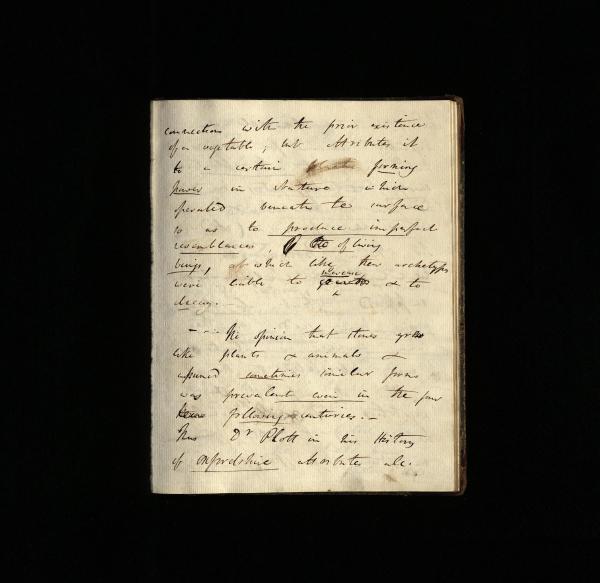 connections with the prior existence
of a vegetable, but Attributes it
to a certain forming
power in Nature which
operated beneath the surface
so as to produce imperfect
resemblances, of living
beings, which like their archetypes
were liable to increase & to
decay. –
– – – The opinion that stones grow
like plants & animals &
assumed sometimes similar forms
was prevalent even in the four
following centuries. –
Thus Dr Plott in his History
of Oxfordshire attributes all.